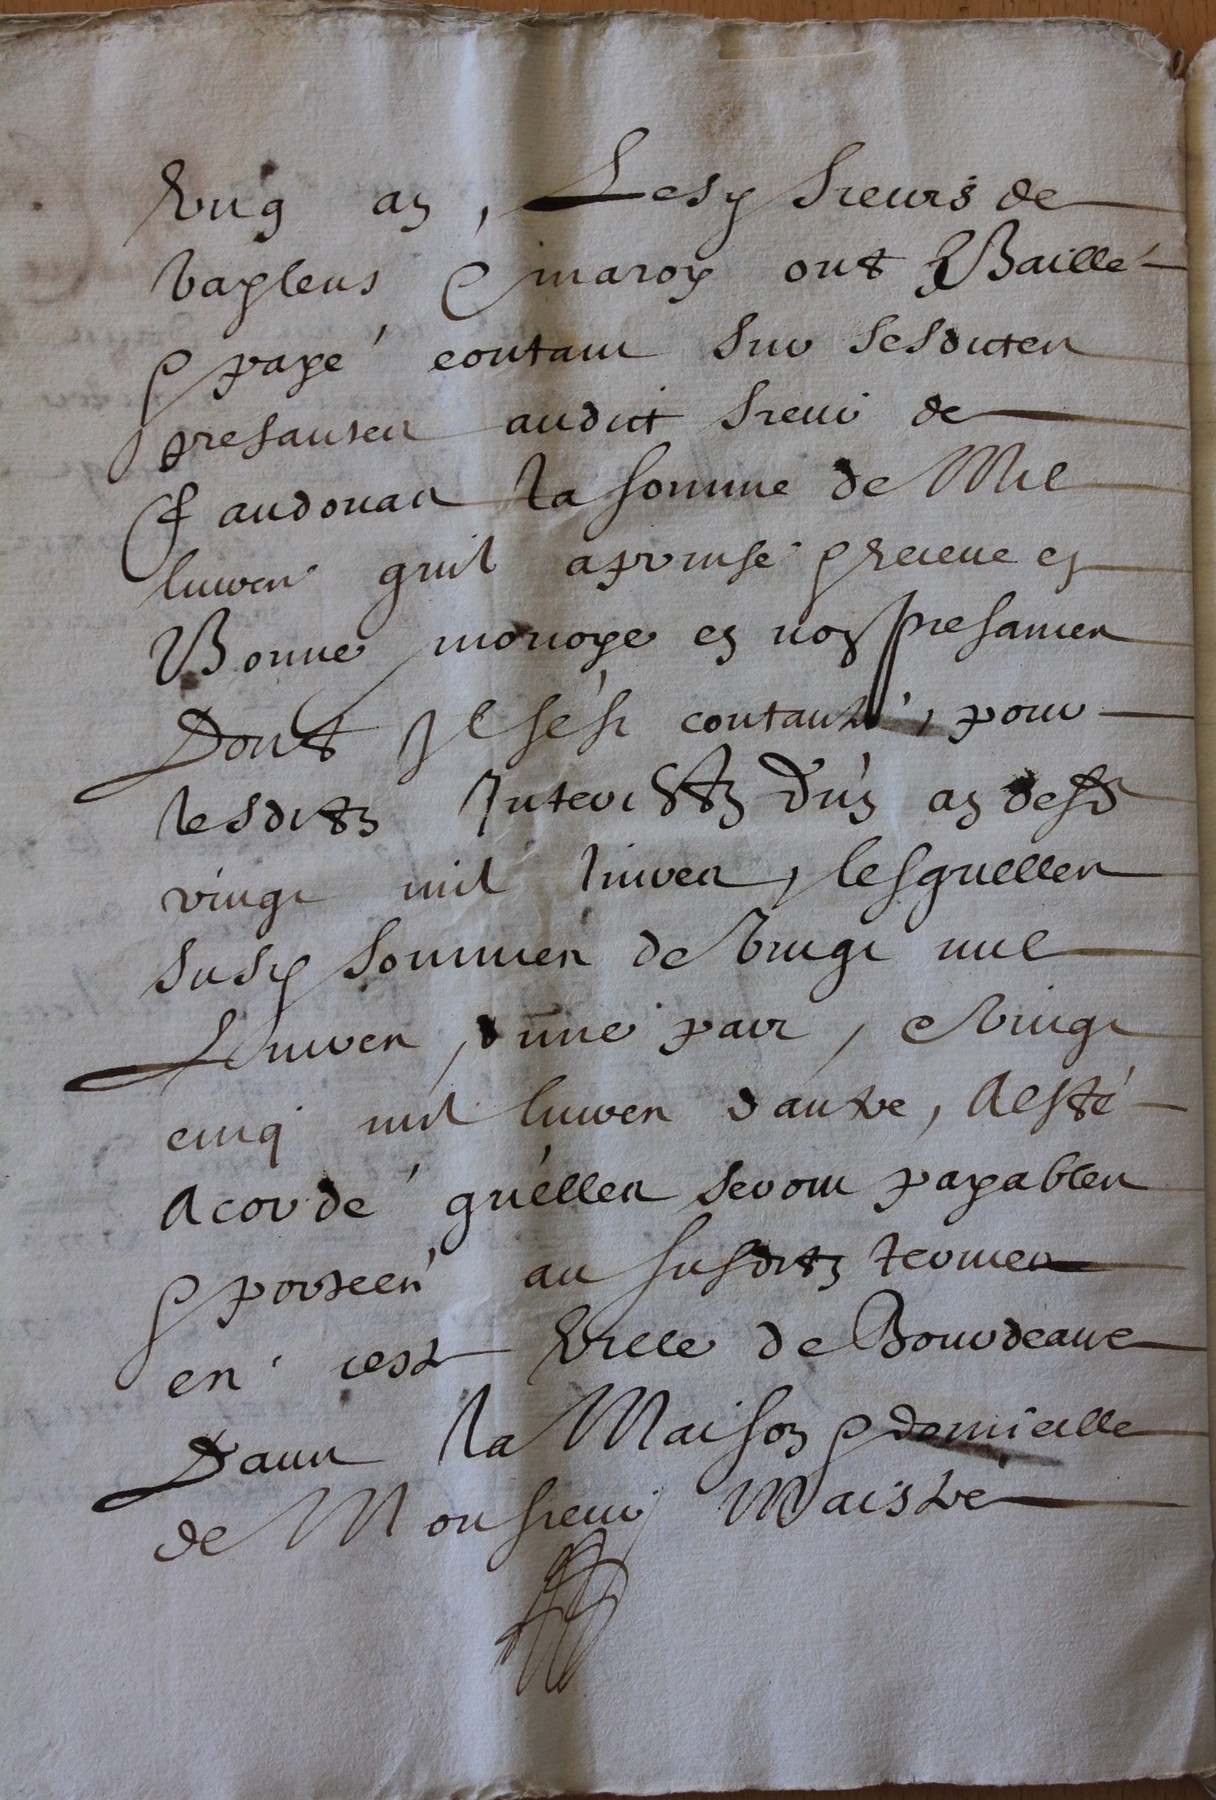 Ung an, Lesd Sieurs de
Vaylens & maroy ont Baillé
& payé contant sur sesdites
presantes audict Sieur de
Faudouas la somme de Mil
livres quil a prinse & receue en
Bonne monoye en noz presances
Dont Il sést contanté, pour
lesdictz Interestz d'un an desd
vingt mil livres, lesquelles
susd Sommes de vingt mil
Livres, d'une part, & vingt
cinq mil livres dautre, A esté
Acordé qu'elles seront payables
& portées au susdictz termes
en cest Ville de Bourdeaux
Dans la Maison & domicille
de Monsieur Maistre